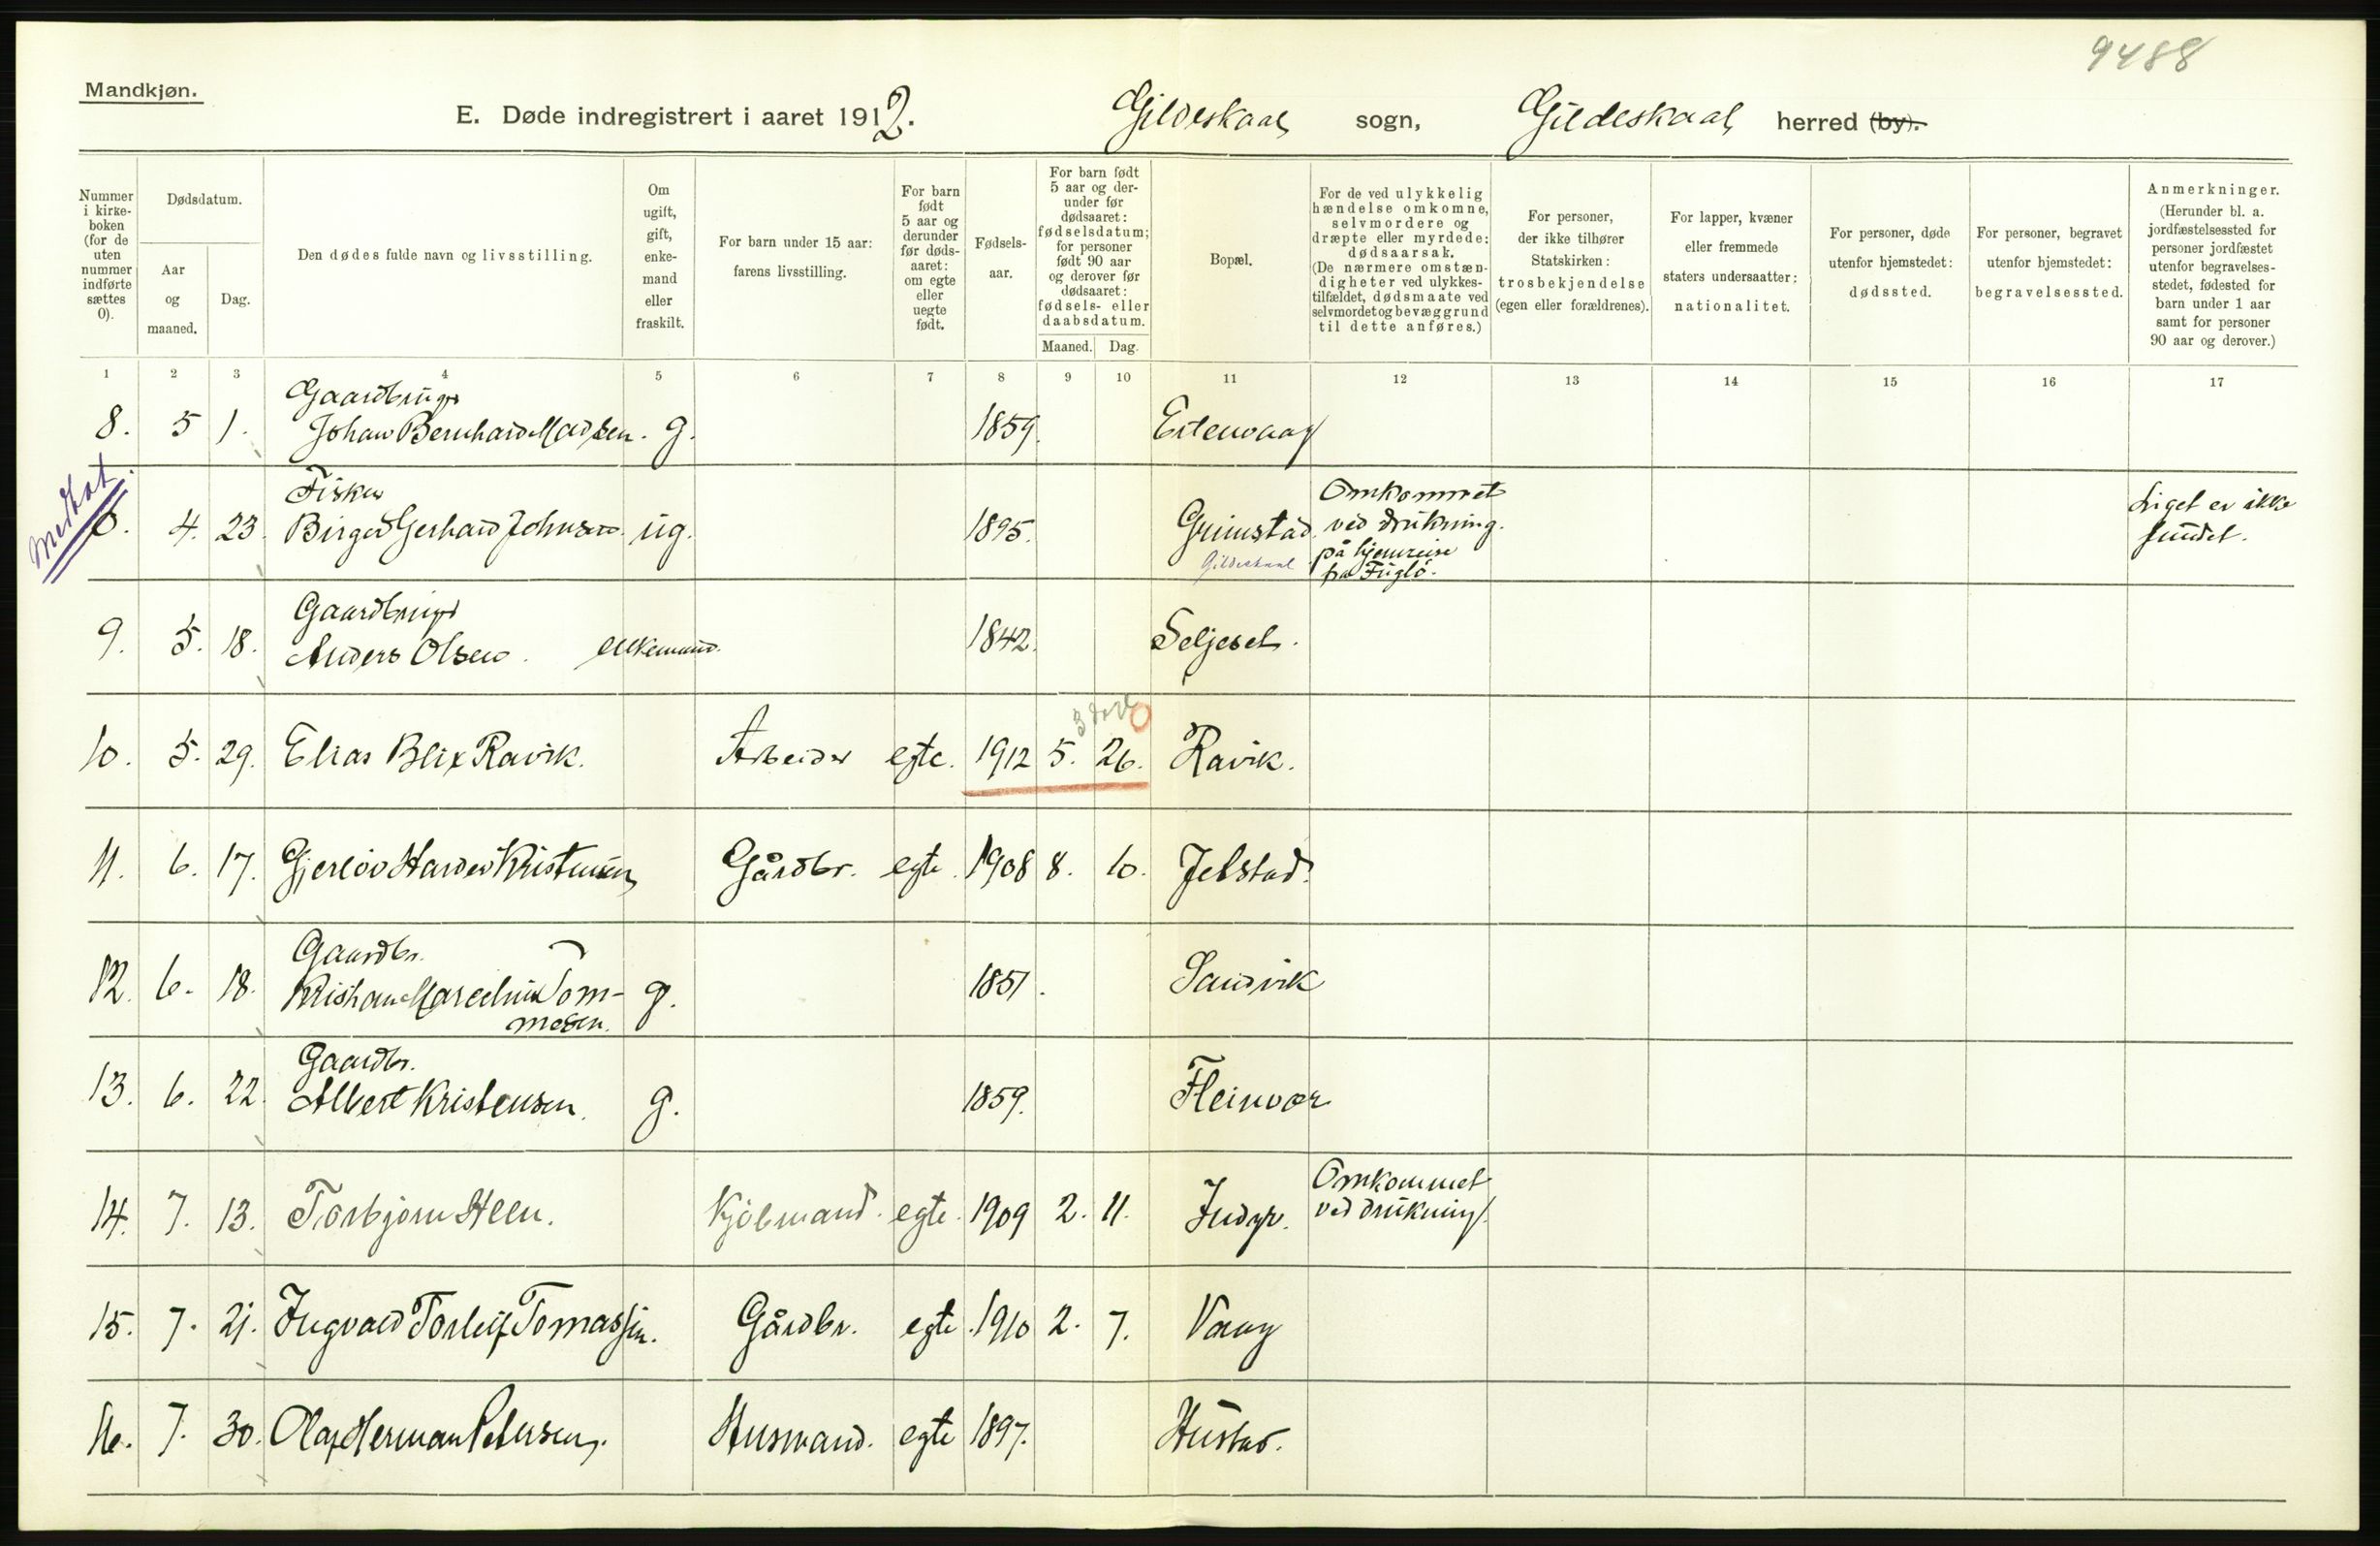 9488
Mandkjøn.
E. Døde indregistrert i aaret 1912. Gildeskaal sogn, Gildeskaal herred (by).
Nummer i kirke-boken (for de uten nummer indførte sættes 0).
Dødsdatum.
Aar og maaned.
Dag.
Den dødes fulde navn og livsstilling.
Om ugift, gift, enke-mand eller fraskilt.
For barn under 15 aar: farens livsstilling.
For barn født 5 aar og derunder før døds-aaret: om egte eller uegte født.
Fødsels-aar.
For barn født 5 aar og der-under før dødsaaret: fødselsdatum; for personer født 90 aar og derover før dødsaaret: fødsels- eller daabsdatum.
Maaned. Dag.
Bopæl.
For de ved ulykkelig hændelse omkomne, selvmordere og dræpte eller myrdede: dødsaarsak. (De nærmere omstæn-digheter ved ulykkes-tilfældet, dødsmaate ved selvmordet og bevæggrund til dette anføres.)
For personer, der ikke tilhører Statskirken: trosbekjendelse (egen eller forældrenes).
For lapper, kvæner eller fremmede staters undersaatter: nationalitet.
For personer, døde utenfor hjemstedet: dødssted.
For personer, begravet utenfor hjemstedet: begravelsessted.
Anmerkninger. (Herunder bl. a. jordfæstelsessted for personer jordfæstet utenfor begravelses-stedet, fødested for barn under 1 aar samt for personer 90 aar og derover.)
1 2 3 4 5 6 7 8 9 10 11 12 13 14 15 16 17
Gaardbruger
8. 5 1. Johan Bernhard Madsen. g. 1859.
Medtat.
Fisker
0. 4. 23. Birger Gerhard Johnsen. ug. 1895. Grimstad. Gildeskaal
Omkommet
ved drukning.
på hjemreise
fra Fuglö.
Liget er ikke
fundet.
Gaardbruger
9. 5. 18. Anders Olsen. enkemand. 1842. Seljeset.
3 dage 0
10. 5. 29. Elias Blix Ravik. Arbeider egte. 1912 5. 26. Ravik.
11. 6. 17. Gjerløv Harder Kristensen Gårdbr. egte. 1908 8. 10. Jelstad.
Gaardbr.
12. 6. 18. Kristian Marcelius Tom- g. 1851. Sandvik
mesen.
Gaardbr.
13. 6. 22. Albert Kristensen. g. 1859. Fleinvær
Omkommet
14. 7. 13. Torbjørn Steen. Kjöbmand. egte. 1909 2. 11. Indyr. ved drukning.
15. 7. 21. Ingvald Torleif Tomassen. Gårdbr. egte. 1910 2. 7. Vaag
16. 7. 30. Olaf Herman Petersen. Husmand. egte 1897. Hustad.